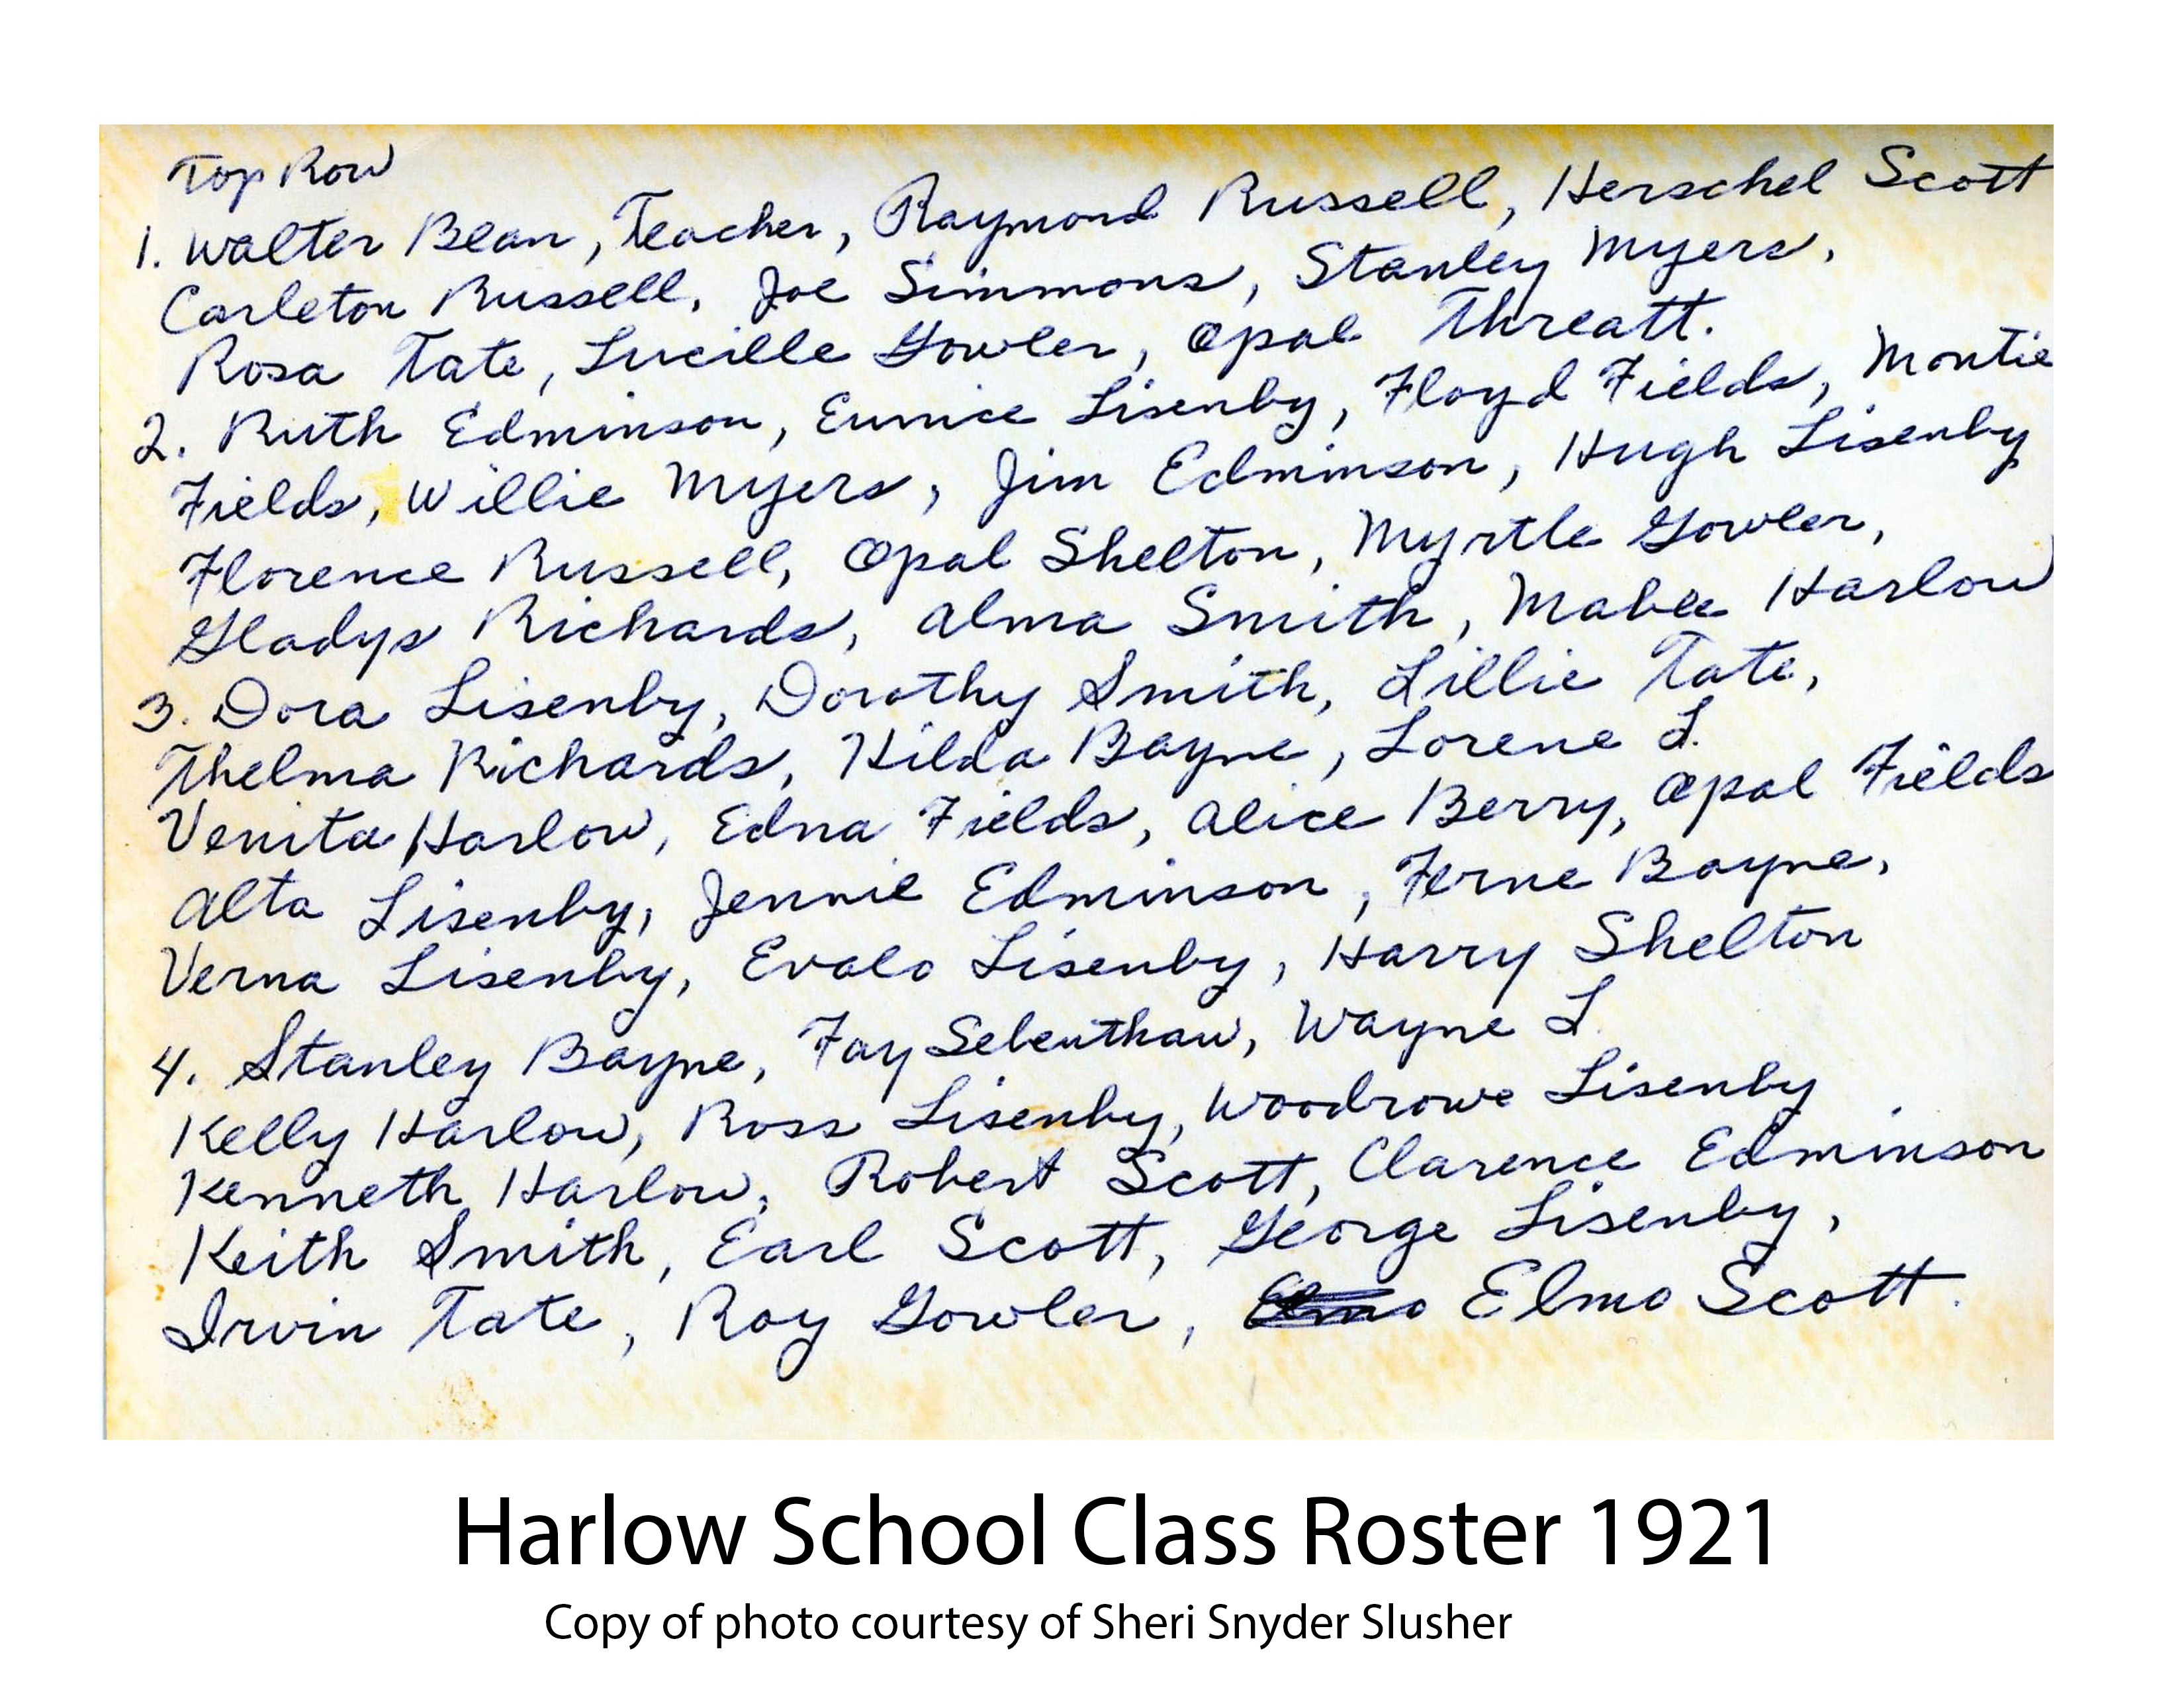 Top Row
1. Walter Bean, Teacher, Raymond Russell, Herschel Scott
Carleton Russell, Joe Simmons, Stanley Myers,
Rosa Tate, Lucille Gowler, Opal Threatt.
2. Ruth Edminson, Eunice Lisenby, Floyd Fields, Montie
Fields, Willie Myers, Jim Edminson, Hugh Lisenby
Florence Russell, Opal Shelton, Myrtle Gowler,
Gladys Richards, Alma Smith, Mabee Harlow
3. Dora Lisenby, Dorothy Smith, Lillie Tate,
Thelma Richards, Hilda Bayne, Lorene L.
Venita Harlow, Edna Fields, Alice Berry, Opal Fields
Alta Lisenby, Jennie Edminson, Ferne Bayne,
Verna Lisenby, Evalo Lisenby, Harry Shelton
4. Stanley Bayne, Fay Sebenthaw, Wayne L
Kelly Harlow, Ross Lisenby, Woodrowe Lisenby
Kenneth Harlow, Robert Scott, Clarence Edminson
Keith Smith, Earl Scott, George Lisenby,
Irvin Tate, Roy Gowler, Elmo Scott.
Harlow School Class Roster 1921
Copy of photo courtesy of Sheri Snyder Slusher